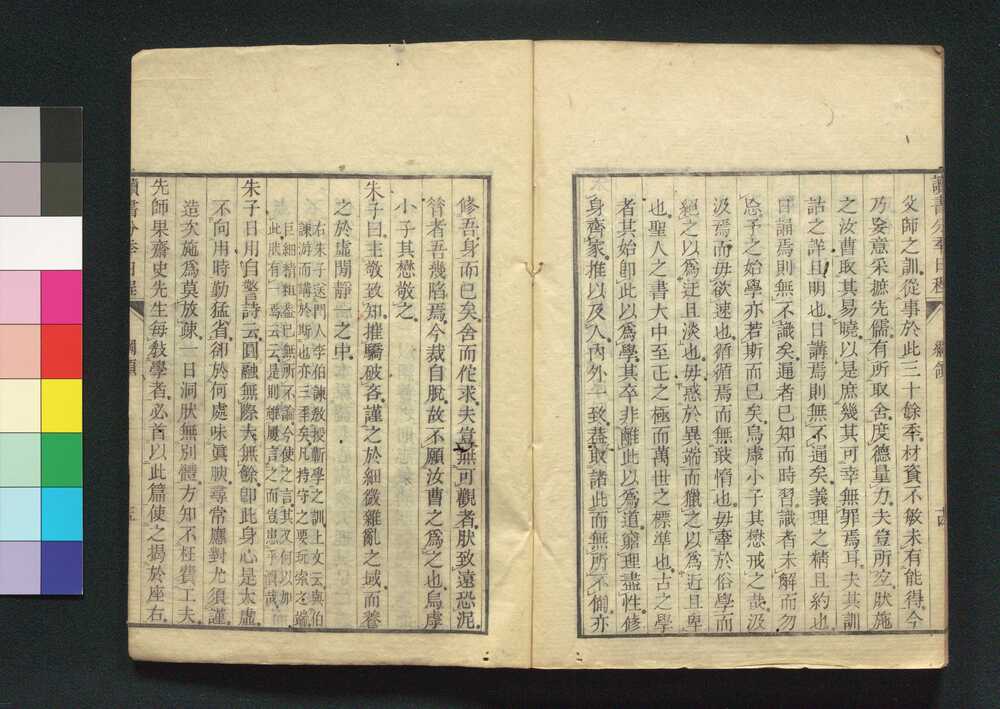 父師之訓從事於此三十餘年材資不敏未有能得今
乃妄意采摭先儒有所取舍度德量力夫豈所宜然施
之汝曹取其易曉以是庶幾其可幸無罪焉耳夫其訓
詁之詳且明也日講焉則無不通矣義理之精且約也
日誦焉則無不識矣通者已知而時習識者未解而勿
忘予之始學亦若斯而已矣烏虖小子其懋戒之哉汲
汲焉而毋欲速也循循焉而無敢惰也毋牽於俗學而
絕之以為迂且淡也毋惑於異端而獵之以為近且卑
也聖人之書大中至正之極而萬世之標準也古之學
者其始即此以為學其卒非離此以為道窮理盡性修
身齊家推以及人內外一致蓋取諸此而無所不備亦
讀書分年日程
綱領
修吾身而已矣舍而佗求夫豈無可觀者然致遠恐泥
昔者吾幾陷焉今裁自脫故不願汝曹之為之也烏虖
小子其懋敬之
朱子曰主敬致知推驕破吝謹之於細微雜亂之域而養
之於虛閒靜一之中
右朱子送門人李伯諫教授蘄學之訓上文云與伯
諫游而講於斯也亦三年矣凡持守之要玩索之端
巨細精粗蓋已無所不論今使之言其又何以加
此然有一焉云云是則雖屢言之而豈患乎瀆哉
朱子日用自警詩云圓融無際大無餘即此身心是太虛
不向用時勤猛省卻於何處味真腴尋常應對尤須謹
造次施為莫放疎一日洞然無別體方知不枉費工夫
先師果齋史先生每教學者必首以此篇使之揭於座右
讀書分年日程
綱領